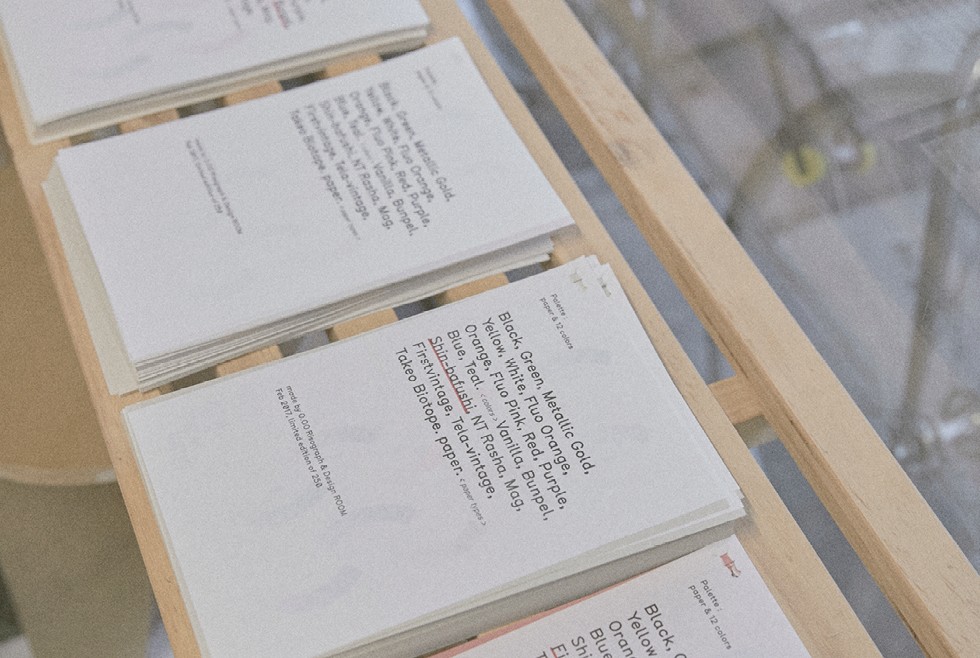 Black, Green, Metallic Gold,
Yellow, White, Fluo Orange,
Orange, Fluo Pink, Red, Purple,
Blue, Teal. Vanilla, Bunpel,
Shin-bafushi, NT Rasha, Mag,
Firstvintage, Tela-vintage,
Takeo Biotope. paper.
Palette :
paper & 12 colors
Black, Green, Metallic Gold,
Yellow, White, Fluo Orange,
Orange, Fluo Pink, Red, Purple,
Blue, Teal. < colors > Vanilla, Bunpel,
Shin-bafushi, NT Rasha, Mag,
Firstvintage, Tela-vintage,
Takeo Biotope. paper. < paper types >
made by O.OO Risograph & Design ROOM
Feb 2017, limited edition of 250.
Palette :
paper & 12 colors
Black,
Yellow